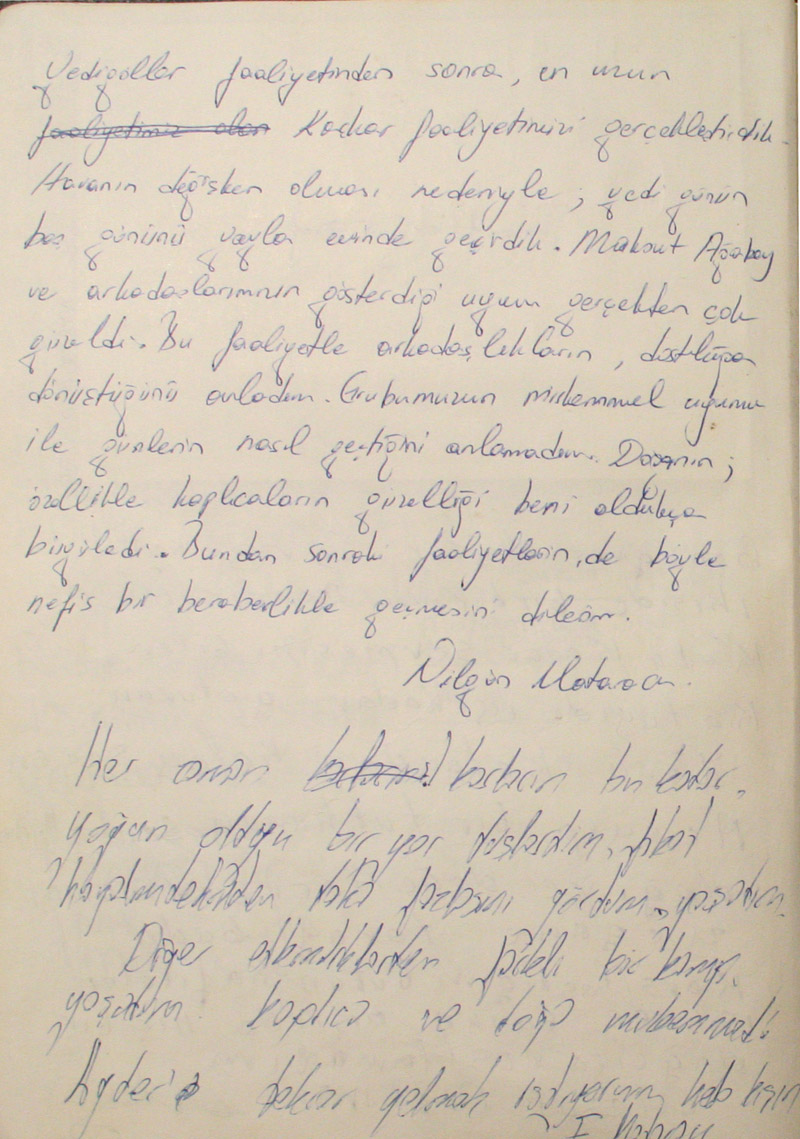 Yedigöller faaliyetinden sonra, en uzun
faaliyetimiz olan Kaçkar faaliyetimizi gerçekleştirdik.
Havanın değişken olması nedeniyle, yedi günün
beş gününü yayla evinde geçirdik. Maksut Ağabey
ve arkadaşlarımızın gösterdiği uyum gerçekten çok
güzeldi. Bu faaliyetle arkadaşlıkların, dostluğa
dönüştüğünü anladım. Grubumuzun mükemmel uyumu
ile günlerin nasıl geçtiğini anlamadım. Doğanın;
özellikle kaplıcaların güzelliği beni oldukça
büyüledi. Bundan sonraki faaliyetlerin, de böyle
nefis bir beraberlikle geçmesini dilerim.
Nilgün Mataracı.
Her zaman karların bu kadar
yoğun olduğu bir yer düşlerdim, fakat
hayalimdekinden daha fazlasını gördüm, yaşadım.
Diğer etkinliklerden farklı bir kamp
yaşadım. Kaplıca ve doğa mükemmeldi.
Ayder'e tekrar gelmek istiyorum, hele kışın